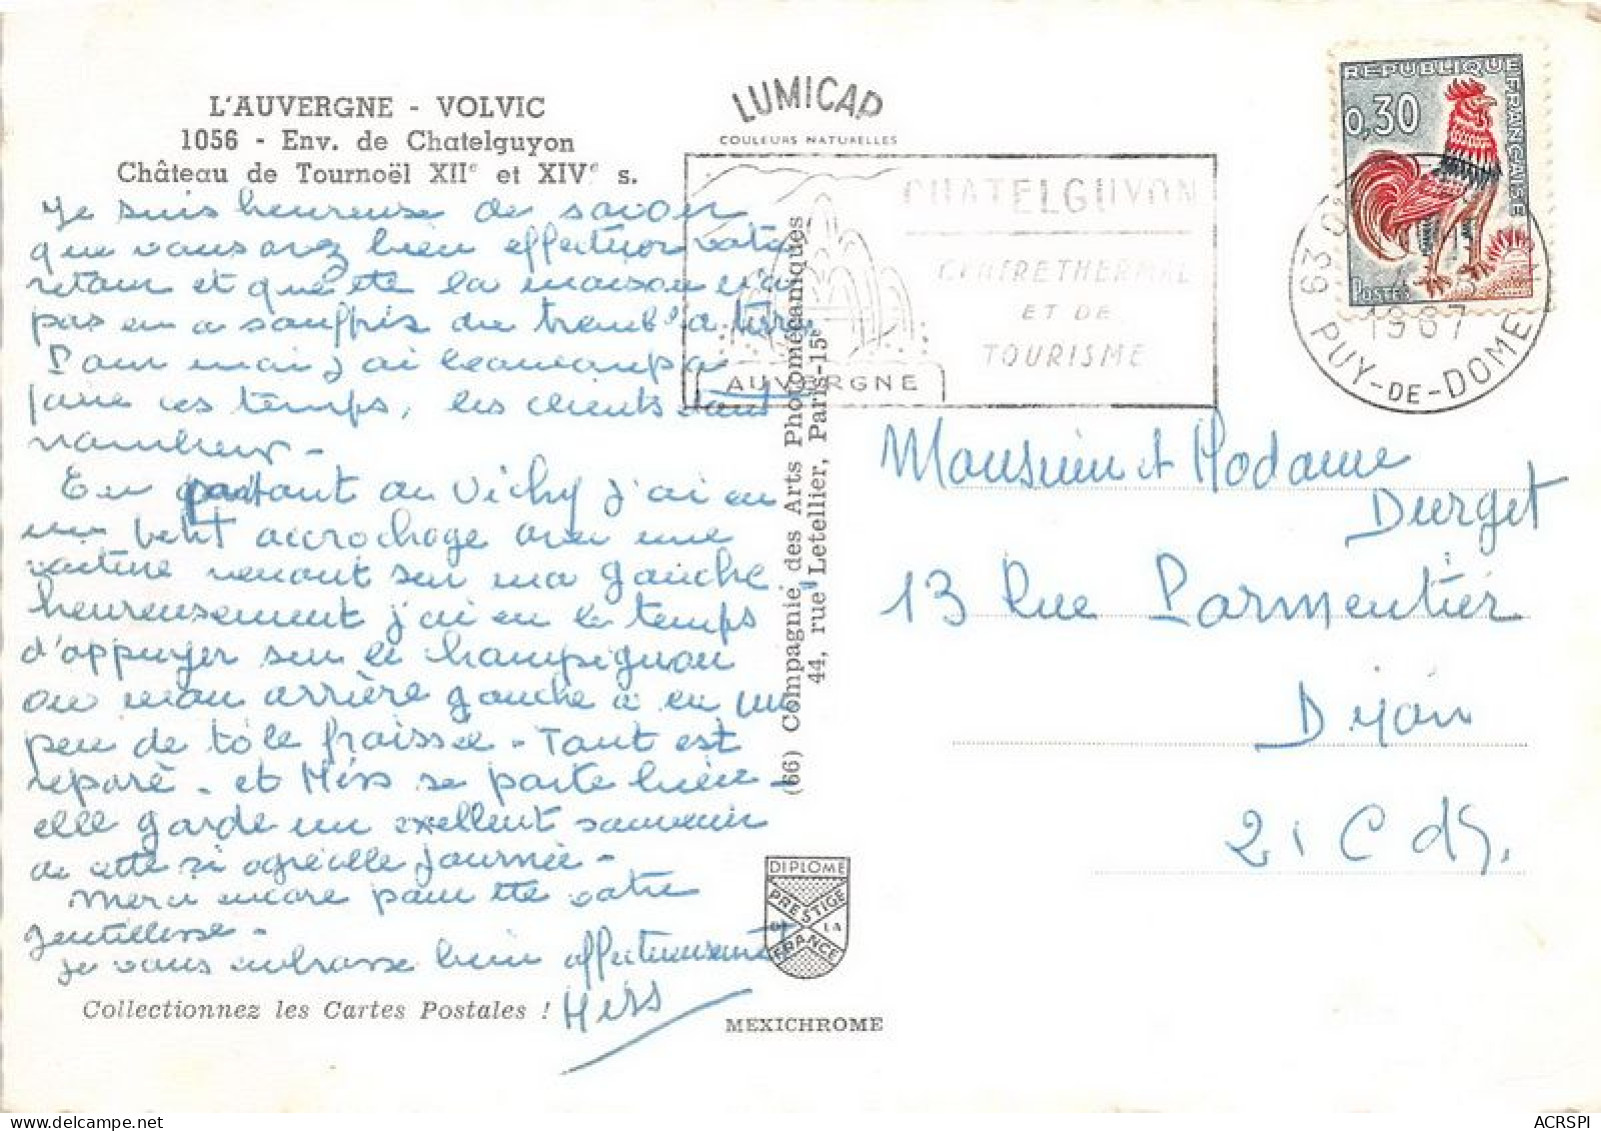 L'AUVERGNE - VOLVIC
1056 - Env. de Chatelguyon
Château de Tournoël XIIe et XIVe s.
Je suis heureuse de savoir
que vous avez bien effectuer votre
retour et que la maison n'a
pas eu a souffris du trembl' a terre
Pour moi j'ai beaucoup a
faire ces temps, les clients sont
nombreux -
En partant de Vichy j'ai eu
un petit accrochage avec une
voiture venant sur ma gauche
heureusement j'ai eu le temps
d'appuyer sur le champignon
ou mon arrière gauche a eu un
peu de tôle fraissée - Tout est
reparé - et Miss se porte bien -
elle garde un excellent souvenir
de cette si agréable journée -
Merci encore pour votre
gentillesse -
Je vous embrasse bien affectueusement
Miss
Collectionnez les Cartes Postales !
LUMICAP
COULEURS NATURELLES
CHATELGUYON
CENTRE THERMAL
ET DE
TOURISME
AUVERGNE
(66) Compagnie des Arts Photomécaniques
44, rue Letellier, Paris-15e
DIPLOME
PRESTIGE
DE LA
FRANCE
MEXICHROME
REPUBLIQUE FRANCAISE
0,30
POSTES
63
1967
PUY-DE-DOME
Monsieur et Madame
Durget
13 Rue Parmentier
Dijon
21 C d'
ACRSPI